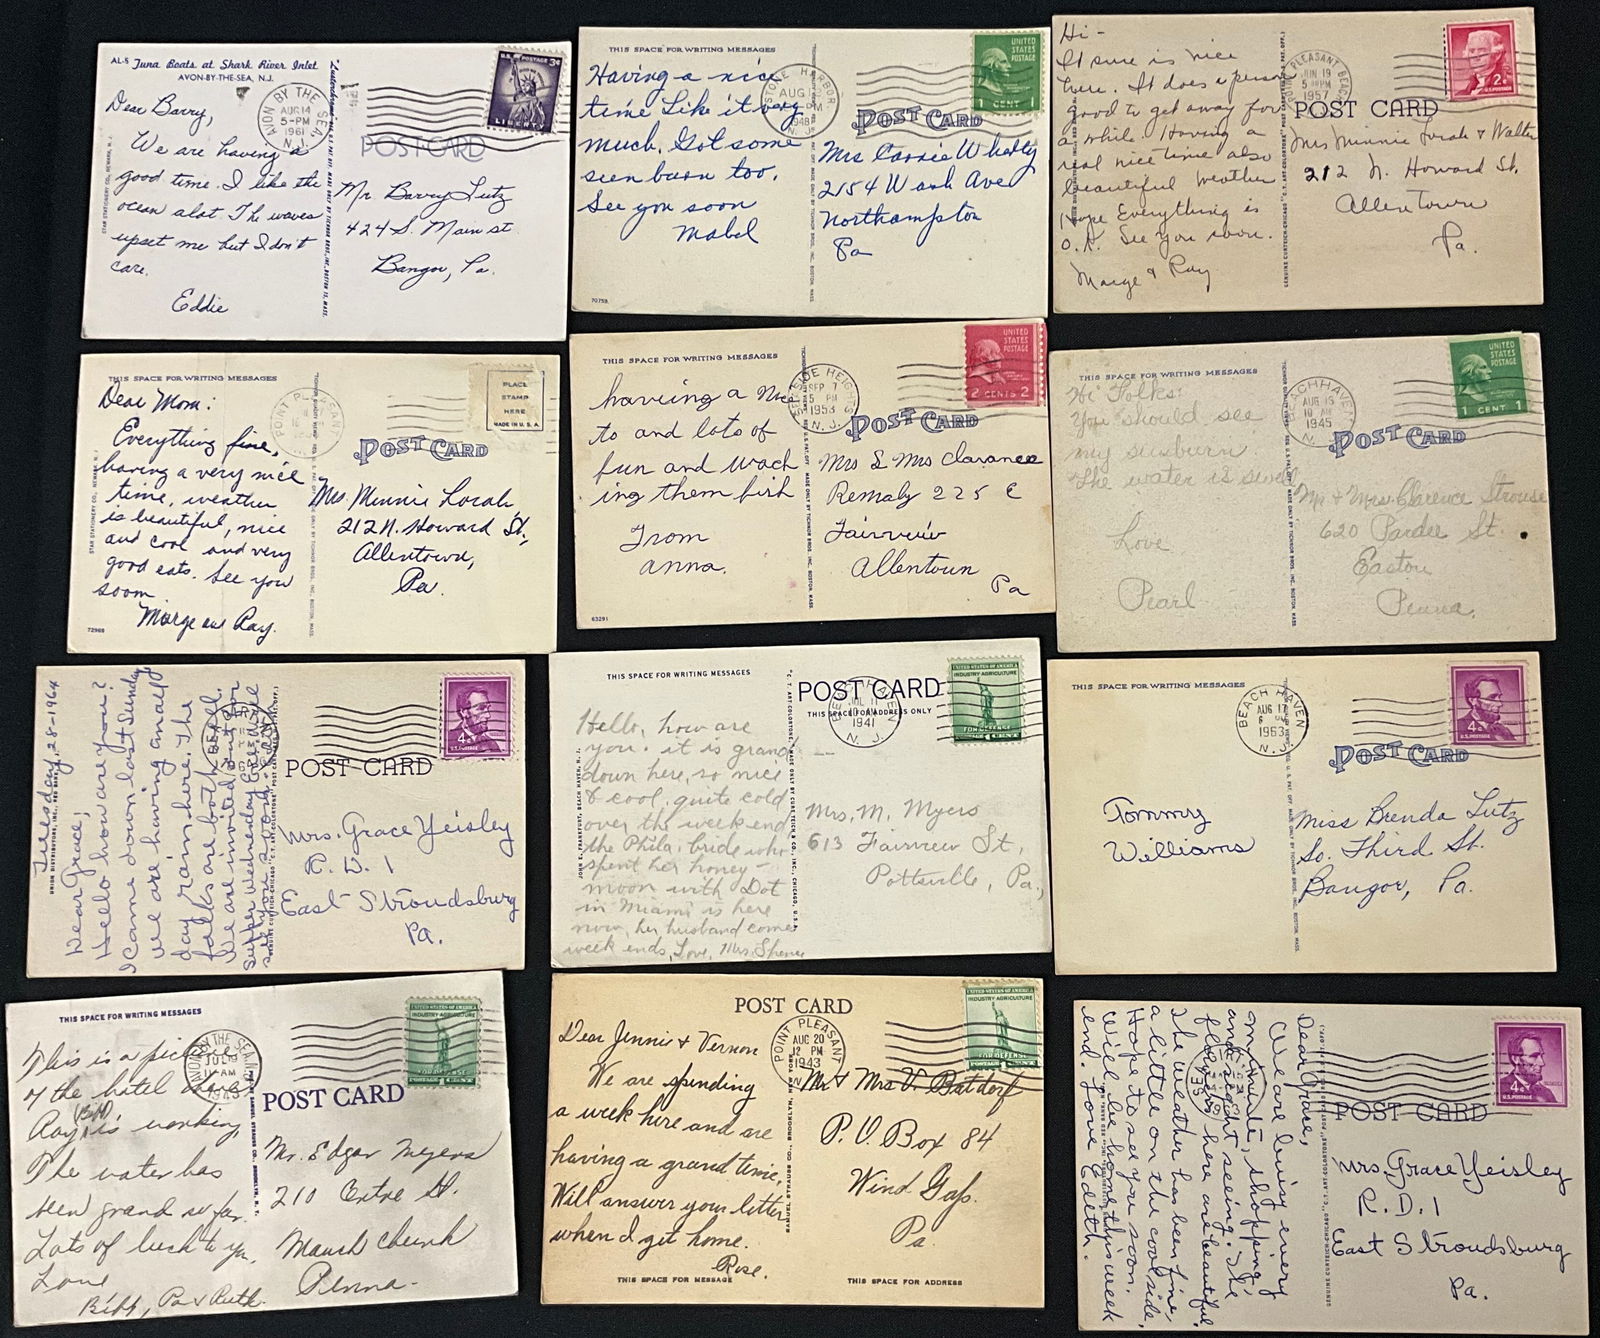 AL-5 Tuna Boats at Shark River Inlet
AVON-BY-THE-SEA, N.J.
Dear Barry,
We are having a
good time. I like the
ocean alot. The waves
upset me but I don't
care.
Eddie
AVON BY THE SEA, N.J.
AUG 14
5-PM
1961
U.S. POSTAGE 3¢
LIBERTY
POST CARD
Mr. Barry Lutz
424 S. Main st
Bangor, Pa.
STAR STATIONERY CO., NEWARK, N. J.
THIS SPACE FOR WRITING MESSAGES
Having a nice
time Like it very
much. Got some
seen burn too.
See you soon
Mabel
70759
STONE HARBOR
AUG
PM
1948
N. J.
UNITED
STATES
POSTAGE
1 CENT 1
POST CARD
Mrs Carrie
2154 Wash Ave
Northampton
Pa
Hi-
It sure is nice
here. It does a person
good to get away for
a while. Having a
real nice time also
beautiful weather
Hope Everything is
O.K. See you soon.
Marge & Ray
POINT PLEASANT BEACH
JUN 19
5 PM
1957
2¢
U.S. POSTAGE
POST CARD
Mrs Minnie Lorah & Walter
212 N. Howard St.
Allentown
Pa.
THIS SPACE FOR WRITING MESSAGES
Dear Mom:
Everything fine,
having a very nice
time, weather
is beautiful, nice
and cool and very
good eats. See you
soon
Marge and Ray.
72968
STAR STATIONERY CO., NEWARK, N. J.
POINT PLEASANT
PLACE
STAMP
HERE
MADE IN U.S.A.
POST CARD
Mrs. Minnie Lorah
212 N. Howard St.,
Allentown,
Pa.
THIS SPACE FOR WRITING MESSAGES
having a nice
to and lots of
fun and wach
ing them fish
From
anna.
63291
SEASIDE HEIGHTS
SEP 7
5 PM
1953
N. J.
UNITED
STATES
POSTAGE
2 CENTS 2
POST CARD
Mrs & Mrs Clarance
Remaly 225 E
Fairview
Allentown
Pa
THIS SPACE FOR WRITING MESSAGES
Hi Folks
You should see
my sunburn.
The water is swell
Love
Pearl
BEACH HAVEN
AUG 15
10 AM
1945
N. J.
UNITED
STATES
POSTAGE
1 CENT 1
POST CARD
Mr & Mrs. Clarence Strouse
620 Pardee St.
Easton
Penna.
Tuesday, 28-1964
Dear Grace;
Hello how are you?
I came down last Sunday
we are having an
day rain here. The
folks are both well.
We are invited out for
supper Wednesday
see you soon.
4¢
U.S. POSTAGE
POST CARD
Mrs. Grace Yeisley
R. D. 1
East Stroudsburg
Pa.
THIS SPACE FOR WRITING MESSAGES
Hello, how are
you. it is grand
down here, so nice
& cool. quite cold
over the week-end
the Phila. bride who
spent her honey-
moon with Dot
in Miami is here
now, her husband comes
week ends, Love, Mrs.
BEACH HAVEN
JUL 11
1941
N. J.
POST CARD
THIS SPACE FOR ADDRESS ONLY
UNITED STATES OF AMERICA
INDUSTRY AGRICULTURE
FOR DEFENSE
POSTAGE 1 CENT
Mrs. M. Myers
613 Fairview St,
Pottsville, Pa.,
THIS SPACE FOR WRITING MESSAGES
Tommy
Williams
BEACH HAVEN
AUG 17
6
1963
N. J.
4¢
U.S. POSTAGE
POST CARD
Miss Brenda Lutz
So. Third St.
Bangor, Pa.
THIS SPACE FOR WRITING MESSAGES
This is a pic
of the hotel
Ray is working.
The water has
been grand so far.
Lots of luck to you.
Love
Biff, Pa & Ruth.
AVON BY THE SEA
JUL
AM
1943
UNITED STATES OF AMERICA
INDUSTRY AGRICULTURE
FOR DEFENSE
POSTAGE 1 CENT
POST CARD
Mr. Edgar Meyers
210 Centre St.
Mauch Chunk
Penna.
POST CARD
Dear Jennie & Vernon
We are spending
a week here and are
having a grand time,
Will answer your letter
when I get home.
Rose.
THIS SPACE FOR MESSAGE
POINT PLEASANT
AUG 20
12 PM
1943
UNITED STATES OF AMERICA
INDUSTRY AGRICULTURE
FOR DEFENSE
Mr & Mrs V. Batdorf
P.O. Box 84
Wind Gap.
Pa.
THIS SPACE FOR ADDRESS
Dear Grace,
We are busy every
minute, shopping,
and sight seeing. The
flowers here are beautiful.
The weather has been fine,
a little on the cool side,
Hope to see you soon.
Will be home this week
end. Love Edeth.
4¢
U.S. POSTAGE
POST CARD
Mrs. Grace Yeisley
R. D. 1
East Stroudsburg
Pa.